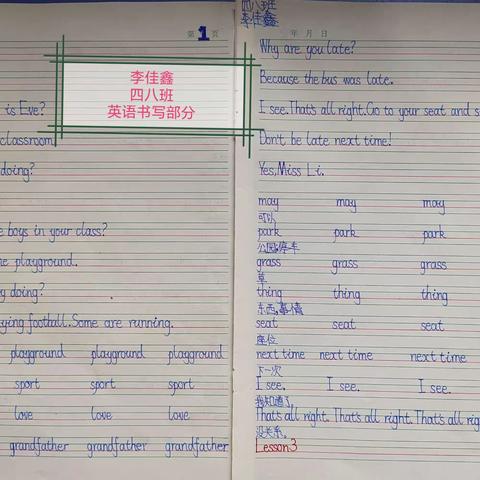 第1页
李佳鑫
四八班
英语书写部分
is Eve?
classroom.
doing?
boys in your class?
playground.
doing?
football. Some are running.
playground playground playground
sport sport sport
love love love
grandfather grandfather grandfather
四八班
李佳鑫
年 月 日
Why are you late?
Because the bus was late.
I see. That's all right. Go to your seat and
Don't be late next time!
Yes, Miss Li.
may may may
可以
park park park
公园;停车
grass grass grass
草
thing thing thing
东西,事情
seat seat seat
座位
next time next time next time
下一次
I see. I see. I see.
我知道了.
That's all right. That's all right. That's all
没关系.
Lesson3